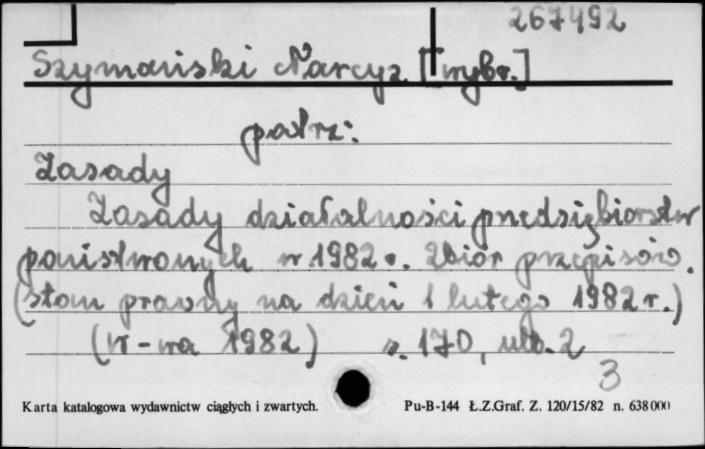 267492
Szymański Narcyz. [wybr.]
patrz:
Zasady
Zasady działalności przedsiębiorstw
państwowych w 1982 r. Zbiór przepisów.
(stan prawny na dzień 1 lutego 1982 r.)
(W-wa 1982) s. 170, nlb. 2
3
Karta katalogowa wydawnictw ciągłych i zwartych. Pu-B-144 Ł.Z.Graf. Z. 120/15/82 n. 638000